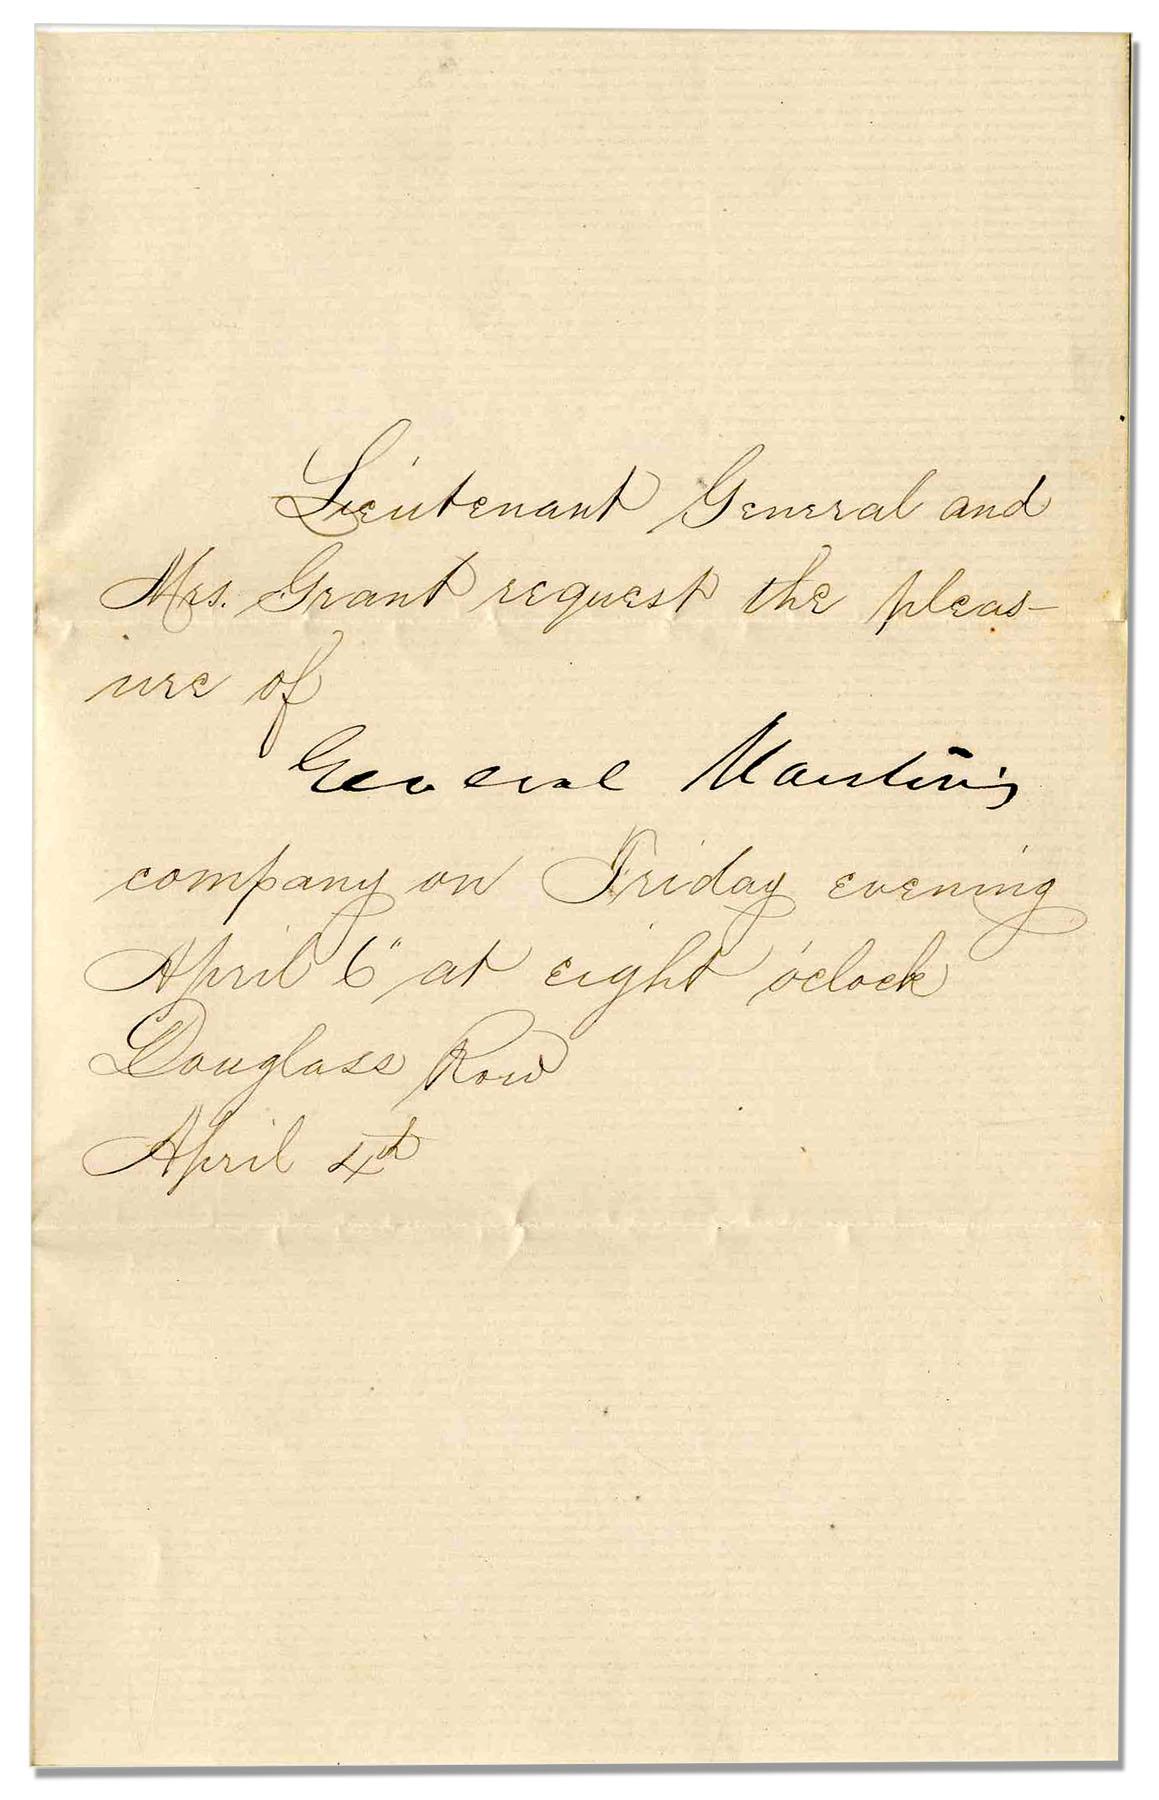 Lieutenant General and
Mrs. Grant request the pleas-
ure of
General Martin's
company on Friday evening
April 6" at eight o'clock
Douglass Row
April 4th